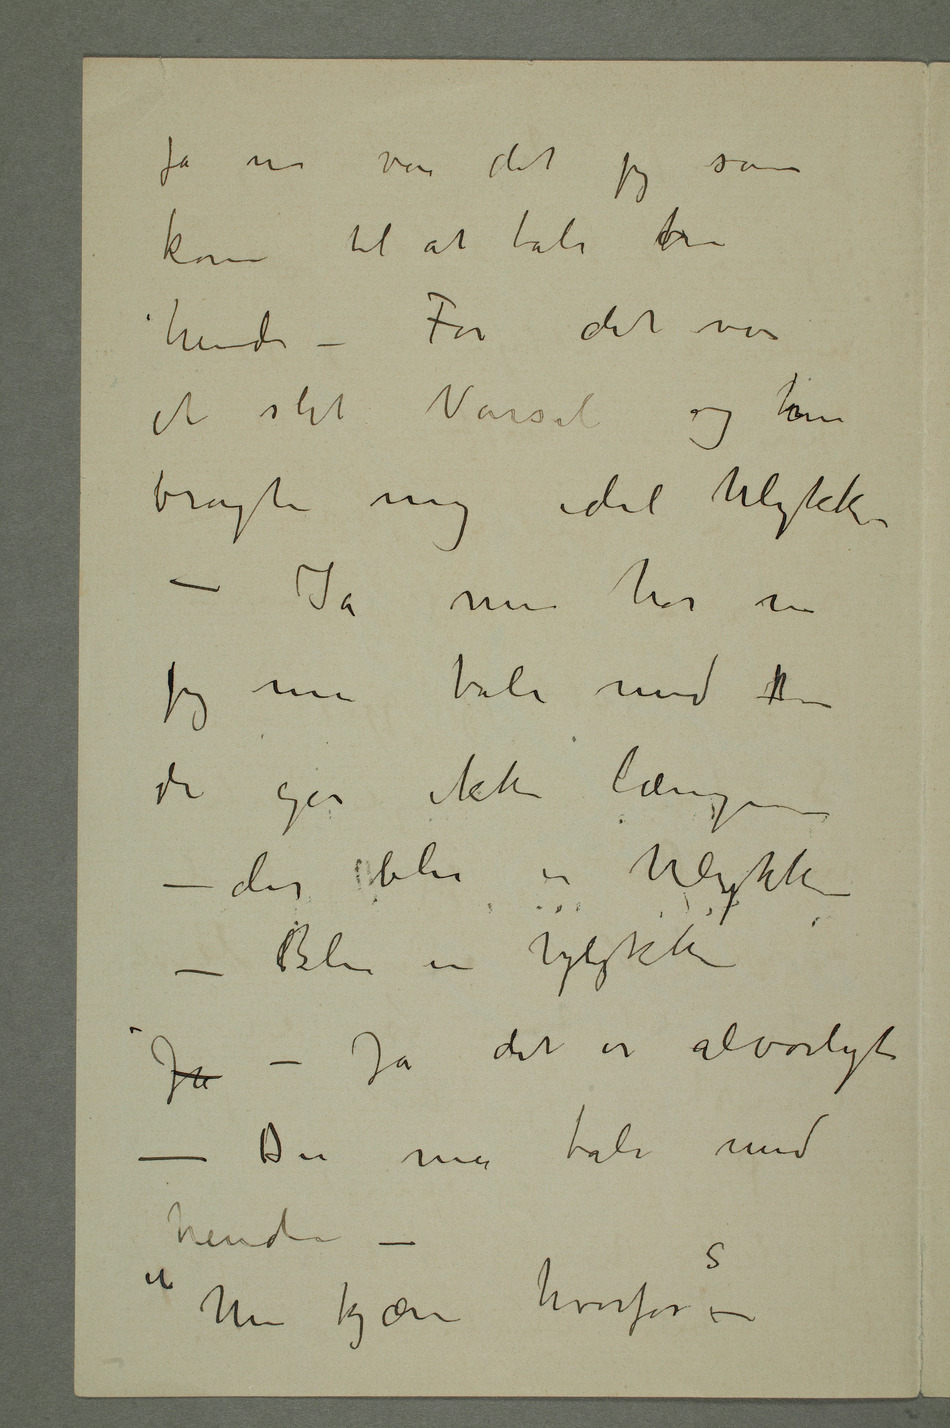 Ja nu var det jeg som
kom til at tale om
hende – For det var
et slet Varsel og hun
bragte mig idel Ulykke
– Ja men hør nu
jeg må tale med
det gør ikke længer
– der blir en Ulykke
– Blir en Ulykke
Ja – Ja det er alvorligt
– Du må tale med
hende –
Men kjære hvorfor –